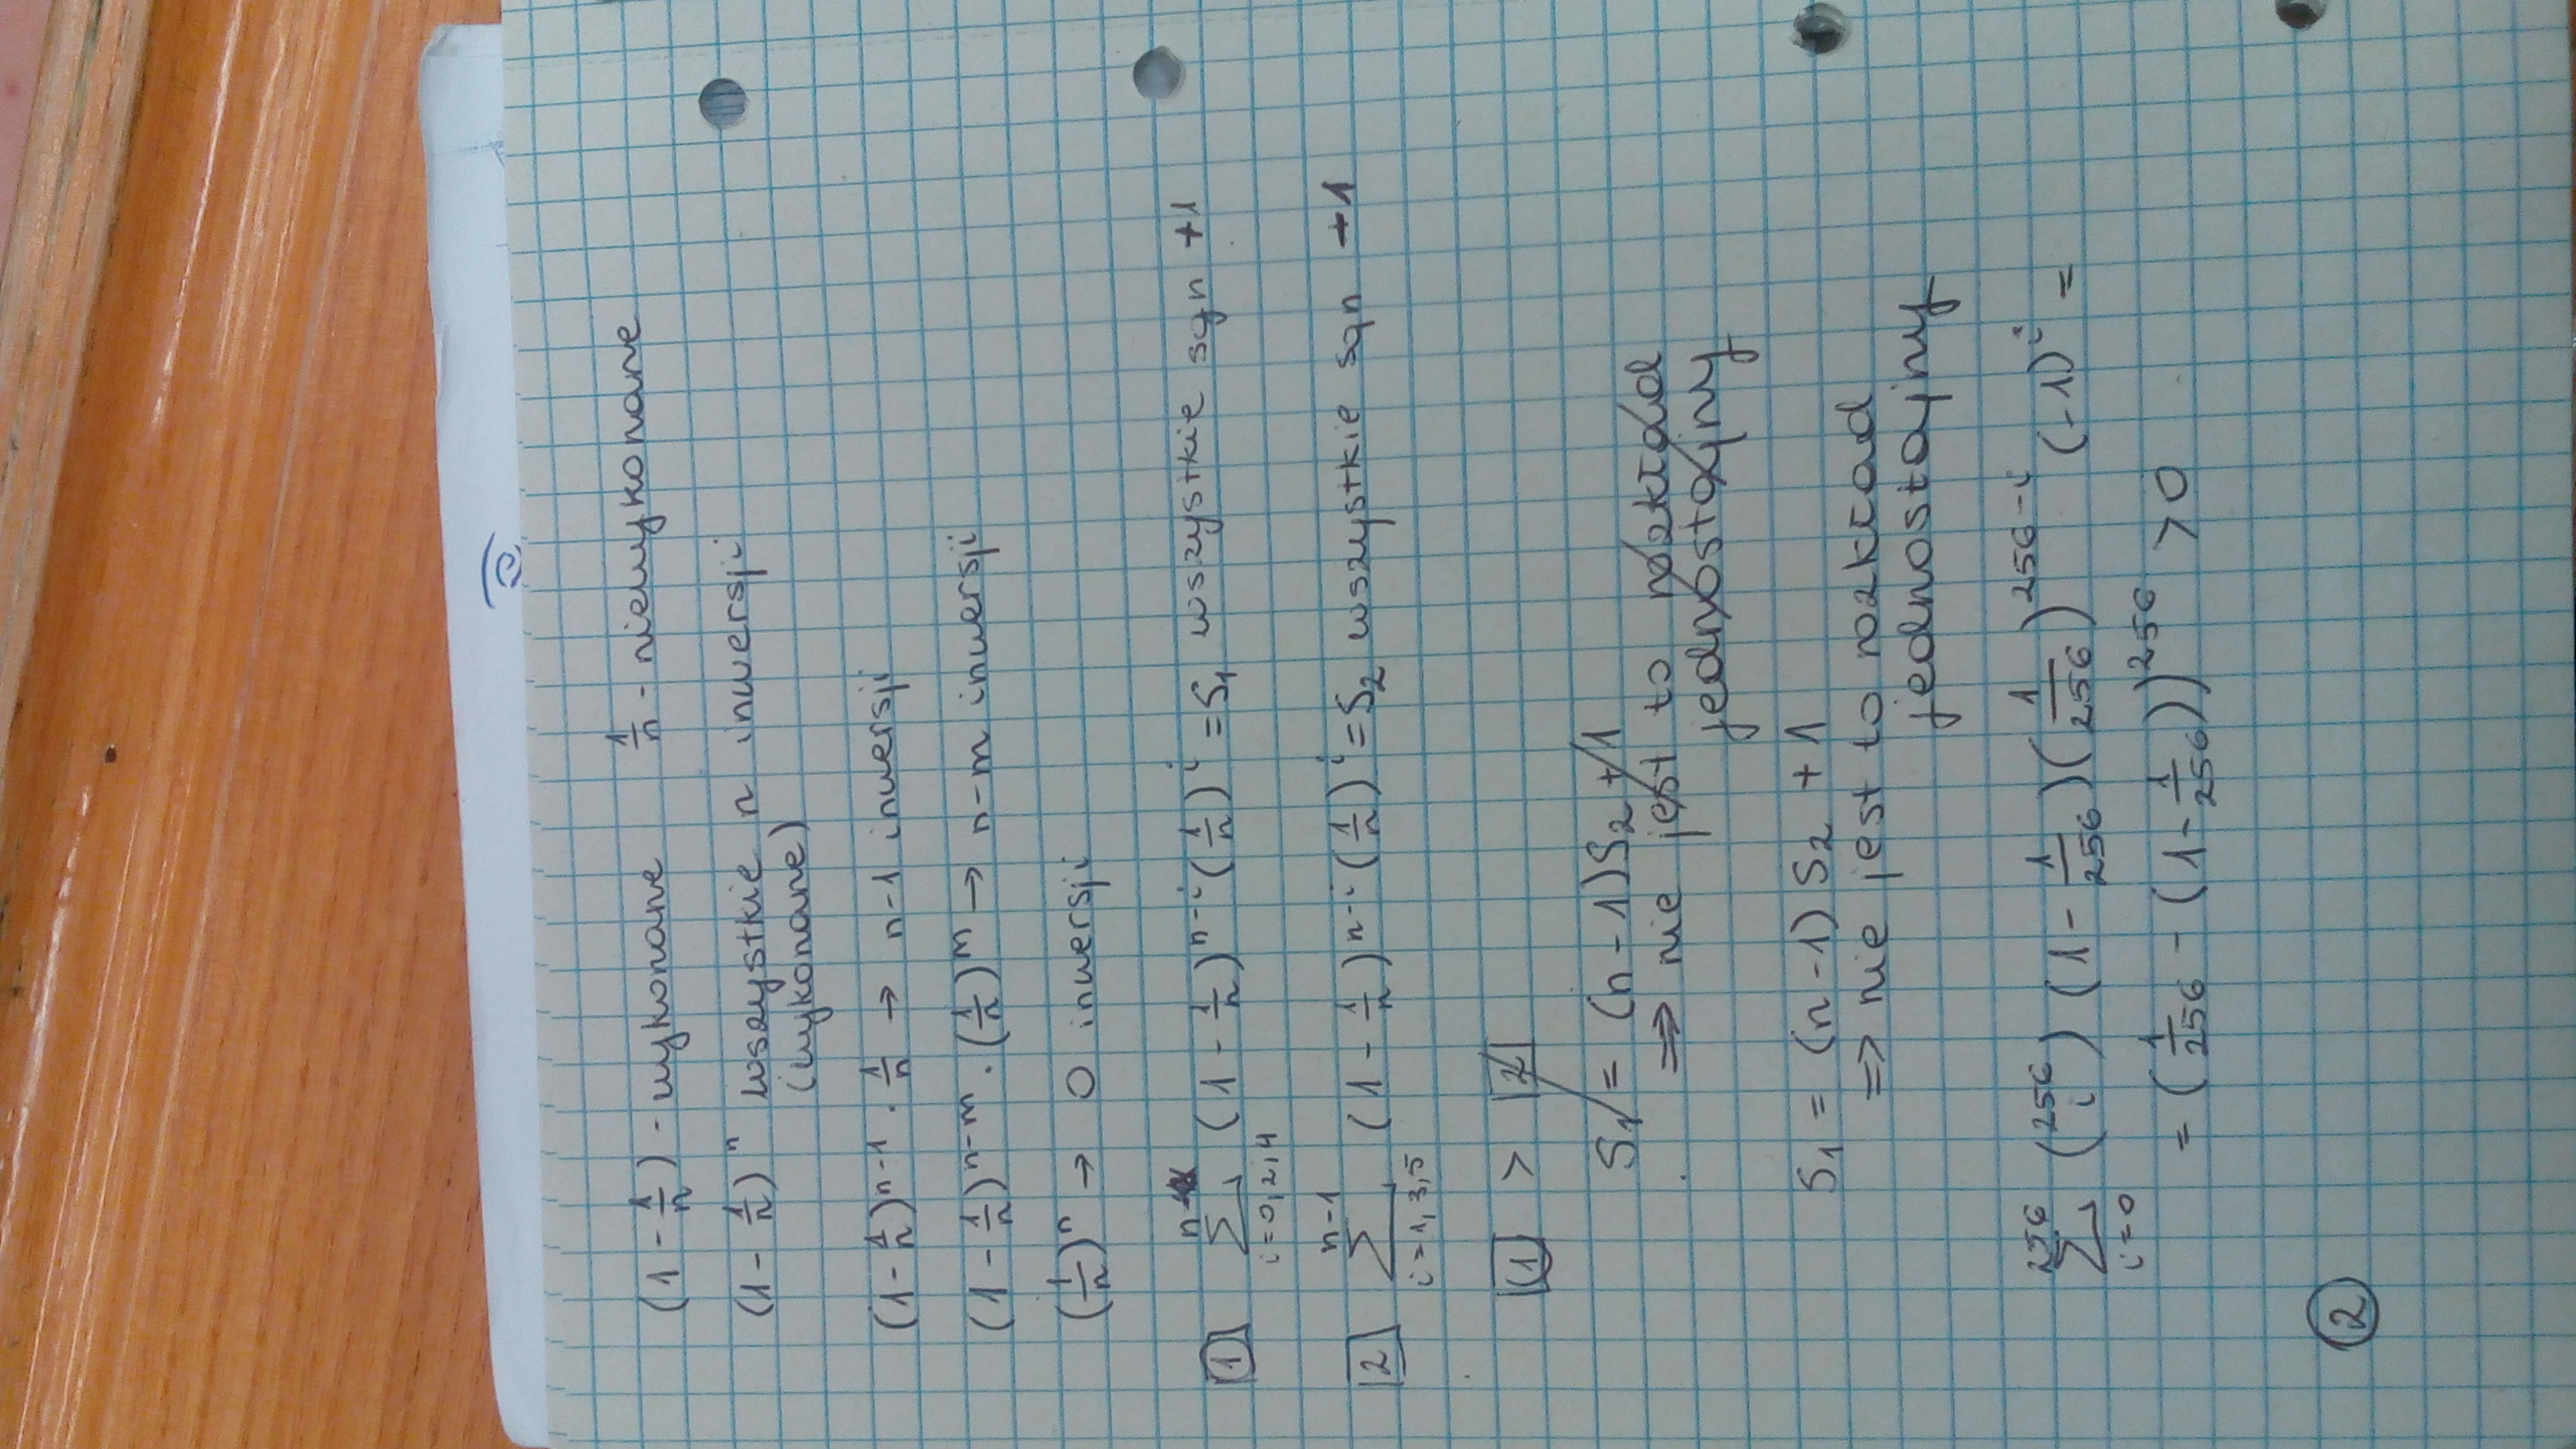 (1 - 1/n) - wykonane 1/n - niewykonane
(1 - 1/n)^n wszystkie n inwersji
(wykonane)
(1 - 1/n)^(n-1) · 1/n → n-1 inwersji
(1 - 1/n)^(n-m) · (1/n)^m → n-m inwersji
(1/n)^n → 0 inwersji
[1] ∑_(i=0,2,4)^n (1 - 1/n)^(n-i) (1/n)^i = S₁ wszystkie sgn +1
[2] ∑_(i=1,3,5)^(n-1) (1 - 1/n)^(n-i) (1/n)^i = S₂ wszystkie sgn +1
[1] > [2]
S₁ = (n-1)S₂ + 1
⇒ nie jest to rozkład
jednostajny
S₁ = (n-1)S₂ + 1
⇒ nie jest to rozkład
jednostajny
∑_(i=0)^256 (256 i) (1 - 1/256)(1/256)^(256-i) (-1)^i =
= (1/256 - (1 - 1/256))^256 > 0
②